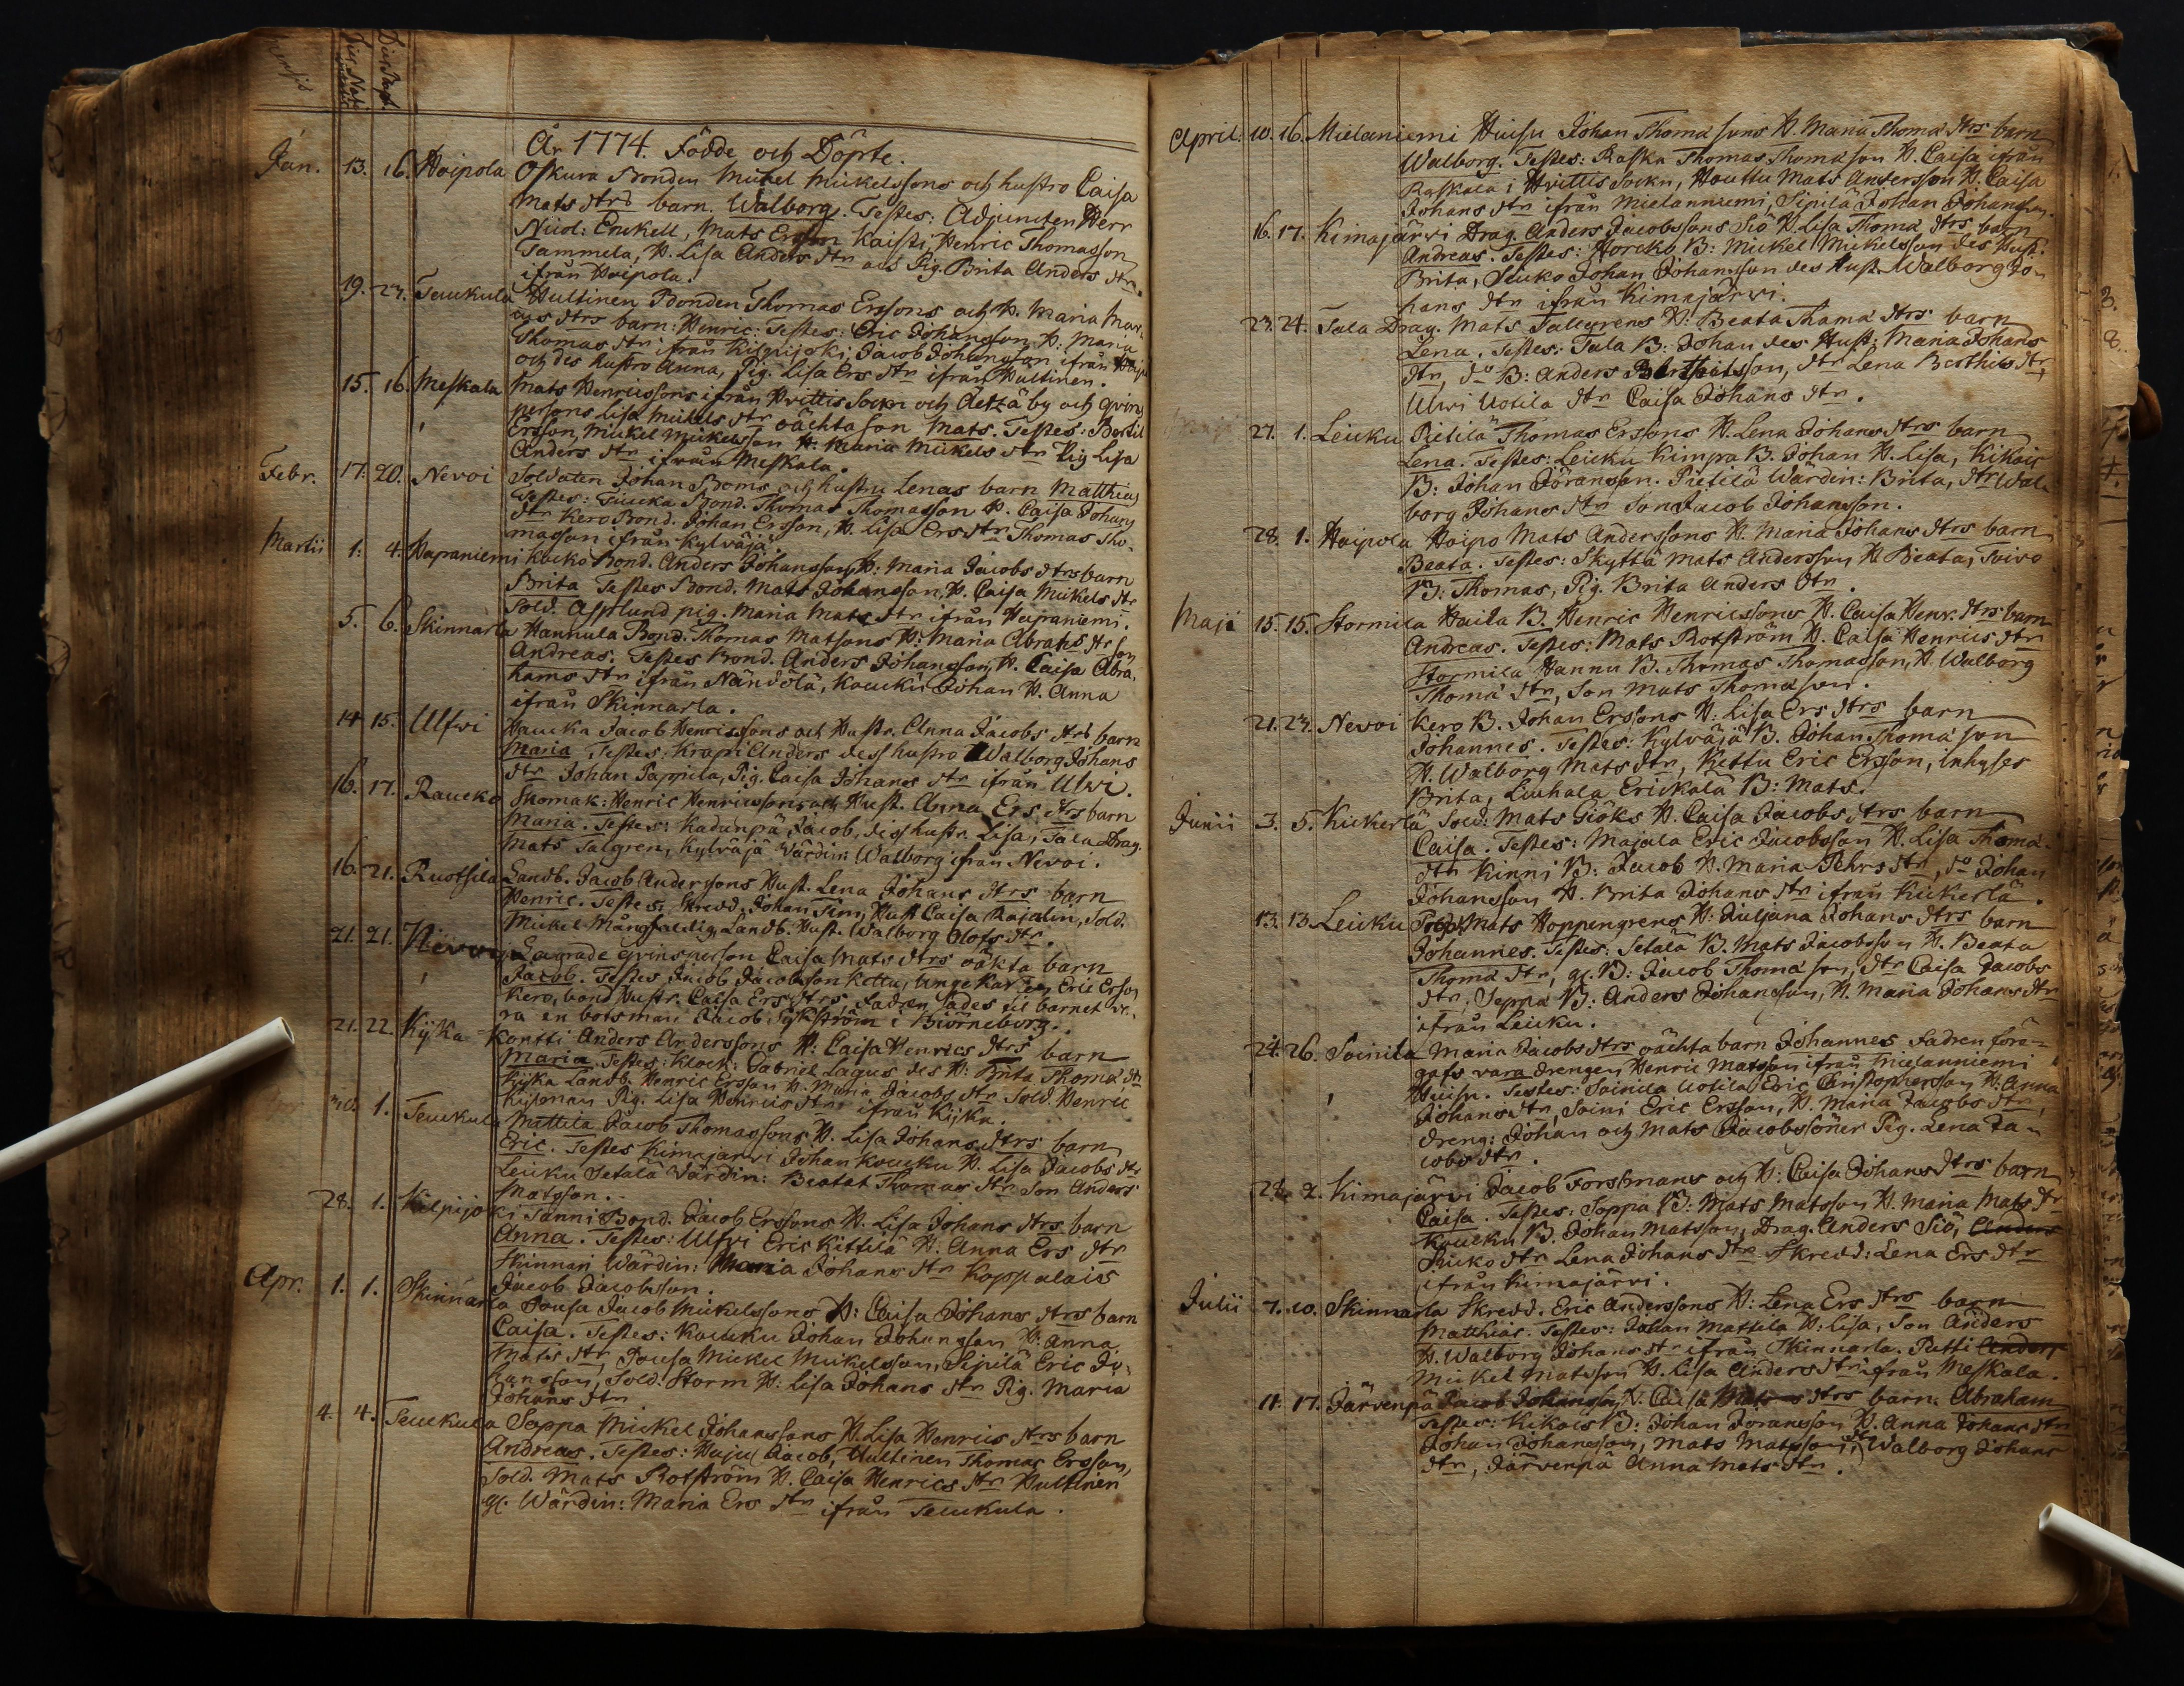 Mensis Dies Nativit. Dies Bapt.
År 1774. Födde och Döpte.
Jan. 13. 16. Hoipola Oskura Bonden Mickel Mickelssons och hustro Caisa
Mats dtrs barn. Walborg. Testes: Adjuncten Herr
Nicol: Enckell, Mats Ersson Kaisti, Henric Thomasson
Tammela, H. Lisa Anders dtr och Pig. Brita Anders dtr
ifrån Hoipola.
19. 23. Teuckula Hultinen Bonden Thomas Erssons och H. Maria
dtrs barn: Henric: Testes: Eric Johansson H: Maria
Thomas dtr ifrån Kilpijoki, Jacob Johansson ifrån
och des hustro Anna, Pig. Lisa Ers dtr ifrån Hultinen.
15. 16. Meskala Mats Henricssons ifrån Hvittis Sockn och by och qvins
persons Lisa Mickels dtr oächta son Mats. Testes: Bertil
Ersson, Mickel Mickelsson H: Maria Mickels dtr Pig Lisa
Anders dtr ifrån Meskala.
Febr. 17. 20. Nevoi Soldaten Johan Boms och hustru Lenas barn Matthias
Testes: Bond. Thomas Thomasson H. Caisa Johans
dtr Kero Bond. Johan Ersson, H. Lisa Ers dtr Thomas Tho-
masson ifrån Kylväjä.
Martii 1. 4. Hapraniemi Kocko Bond. Anders Johansson, H: Maria Jacobs dtrs barn
Brita Testes Bond. Mats Johansson, H. Caisa Mickels dtr
Sold. Asplund pig. Maria Mats dtr ifrån Hapraniemi.
5. 6. Skinnarla Hannula Bond. Thomas Matsons H: Maria Abrahs dtr son
Andreas. Testes Bond. Anders Johansson, H. Caisa Abra-
hams dtr ifrån Nändölä, Koucku Johan H. Anna
ifrån Skinnarla.
14 15. Ulfvi Haucka Jacob Henricssons och Hustr. Anna Jacobs dtrs barn
Maria. Testes: Krapi Anders dess hustro Walborg Johans
dtr Johan Pappila, Pig. Caisa Johans dtr ifrån Ulwi.
16. 17. Raucko Skomak: Henric Henricssons och Hust. Anna Ers dtrs barn
Maria. Testes: Kadunpä Jacob, dess hustr. Lisa, Tala Drag.
Mats Salgren, Kylväjä Värdin Walborg ifrån Nevoi.
16. 21. Ruotsila Landb. Jacob Anderssons Hust. Lena Johans dtrs barn
Henric. Testes, Skredd. Johan Hust Caisa Rajalin, Sold.
Mickel Mångfaldig, Landb. Hust. Walborg Olofs dtr.
21. 21. Lagrade qvinsperson Caisa Mats dtrs oäkta barn
Jacob. Testes Jacob Jacobsson Kettu, unge karlen Eric Ersson
Kero, bond Hustr. Caisa Ers dtrs. Fadren sades til barnet va-
ra en botsman Jacob Sykström i Biörneborg.
21. 22. Kijka Kontti Anders Anderssons H: Caisa Henrics dtrs barn
Maria. Testes: Klock: Gabriel Lagus des H: Brita Thoma dtr
Kijka Landb. Henric Ersson H. Maria Jacobs dtr Sold. Henric
Kijeman Pig. Lisa Henrics dtr ifrån Kijka.
1. Teuckula Mattila Jacob Thomassons H. Lisa Johans dtrs barn
Eric. Testes Kimajärvi Johan Koucku H. Lisa Jacobs dtr
Leicku Setälä Värdin: Beata Thomas dtr Son Anders
Matsson.
28. 1. Kilpijoki Sanni Bond. Jacob Erssons H. Lisa Johans dtrs barn
Anna. Testes: Ulfvi Eric Kittilä H. Anna Ers dtr
Skinnari Wärdin: Maria Johans dtr Koppalais
Jacob Jacobsson.
Apr. 1. 1. Skinnarla Sousa Jacob Mickelssons H: Caisa Johans dtrs barn
Caisa. Testes: Koucku Johan Johansson H: Anna
Mats dtr, Pousa Mickel Mickelsson, Sipilä Eric Jo-
hansson, Sold. Storm H. Lisa Johans dtr Pig. Maria
Johans dtr
4. 4. Teuckula Soppa Mickel Johanssons H. Lisa Henrics dtrs barn
Andreas. Testes: Huju Jacob, Hultinen Thomas Ersson,
Sold. Mats Rotström H. Caisa Henrics dtr Hultinen
gl. Wärdin: Maria Ers dtr ifrån Teuckula.
April. 10. 16. Mielaniemi Huisu Johan Thoma sons H. Maria Thoma dtrs barn
Walborg. Testes: Raska Thomas Thomason H. Caisa ifrån
Raskala i Hvittis Sockn, Houttu Mats Andersson H. Caisa
Johans dtr ifrån Mielanniemi, Sipilä Johan Johansson.
16. 17. Kimajärvi Drag. Anders Jacobssons Siö H. Lisa Thoma dtrs barn
Andreas. Testes: Horcko B: Mickel Mickelsson des Hust.
Brita, Seuko Johan Johansson des Hust. Walborg Jo-
hans dtr ifrån Kimajärvi.
23. 24. Tala Drag. Mats Salgrens H: Beata Thoma dtrs barn
Lena. Testes: Tala B: Johan des Hust: Maria Johans
dtr, do B: Anders Berthilsson, dtr Lena Berthils dtr,
Ulwi Uotila dtr Caisa Johans dtr.
27. 1. Leicku Pietilä Thomas Erssons H. Lena Johans dtrs barn
Lena. Testes: Leicku Kimpa B. Johan H. Lisa, Kikois
B: Johan Göransson. Pietilä Wärdin: Brita, dtr Wal-
borg Johans dtr Son Jacob Johansson.
28. 1. Hoipola Hoipo Mats Anderssons H. Maria Johans dtrs barn
Beata. Testes: Skyttä Mats Andersson H Beata, Toivo
B: Thomas, Pig. Brita Anders dtr.
Maji 15. 15. Stormila Haila B. Henric Henricssons H. Caisa Henr. dtrs barn
Andreas. Testes: Mats Rotström H. Caisa Henrics dtr
Stormila Hannu B. Thomas Thomasson, H. Walborg
Thoma dtr, Son Mats Thomason.
21. 23. Nevoi Kero B. Johan Erssons H: Lisa Ers dtrs barn
Johannes. Testes: Kylväjä B. Johan Thomason
H. Walborg Mats dtr, Kettu Eric Ersson, Inhyses
Brita, Liuhala Erickala B: Mats.
Junii 3. 5. Kickerlä Sold: Mats Giöks H. Caisa Jacobs dtrs barn
Caisa. Testes: Majala Eric Jacobsson H. Lisa Thoma
dtr Kinni B: Jacob H. Maria Pehrs dtr, do Johan
Johansson H. Brita Johans dtr ifrån Kickerlä.
13. 13. Leicku Mats Hoppengrens H: Juliana Johans dtrs barn
Johannes. Testes: Setälä B. Mats Jacobsson H. Beata
Thoma dtr, gl. B: Jacob Thomason, dtr Caisa Jacobs
dtr, Seppä B: Anders Johansson, H. Maria Johans dtr
ifrån Leicku.
24. 26. Soinila Maria Jacobs dtrs oächta barn Johannes Fadren före-
gafs vara drengen Henric Matsson ifrån Mielanniemi
Huisu. Testes: Soinila Uotila Eric Christophersson H. Anna
Johans dtr, Soini Eric Ersson, H. Maria Jacobs dtr,
dreng: Johan och Mats Jacobssöner Pig. Lena Ja-
cobs dtr.
28. 2. Kimajärvi Jacob Forssmans och H: Caisa Johans dtrs barn
Caisa. Testes: Soppa B: Mats Matsson H. Maria Mats dtr
Koucku B. Johan Matsson, Drag. Anders Siö, Anders
Suko dtr Lena Johans dtr Skredd: Lena Ers dtr
ifrån Kimajärvi.
Julii 7. 10. Skinnarla Skredd. Eric Anderssons H: Lena Ers dtrs barn
Matthias. Testes: Johan Mattila H. Lisa, Son Anders
H. Walborg Johans dtr ifrån Skinnarla. Patti Anders
Mickel Matsson H. Lisa Anders dtr ifrån Meskala.
11. 17. Järvenpä Jacob Johansson, H. Caisa Mats dtrs barn: Abraham
Testes: Kikois B: Johan Joransson H. Anna Johans dtr
Johan Johansson, Mats Matsson, dtr Walborg Johans
dtr, Järvenpä Anna Mats dtr.